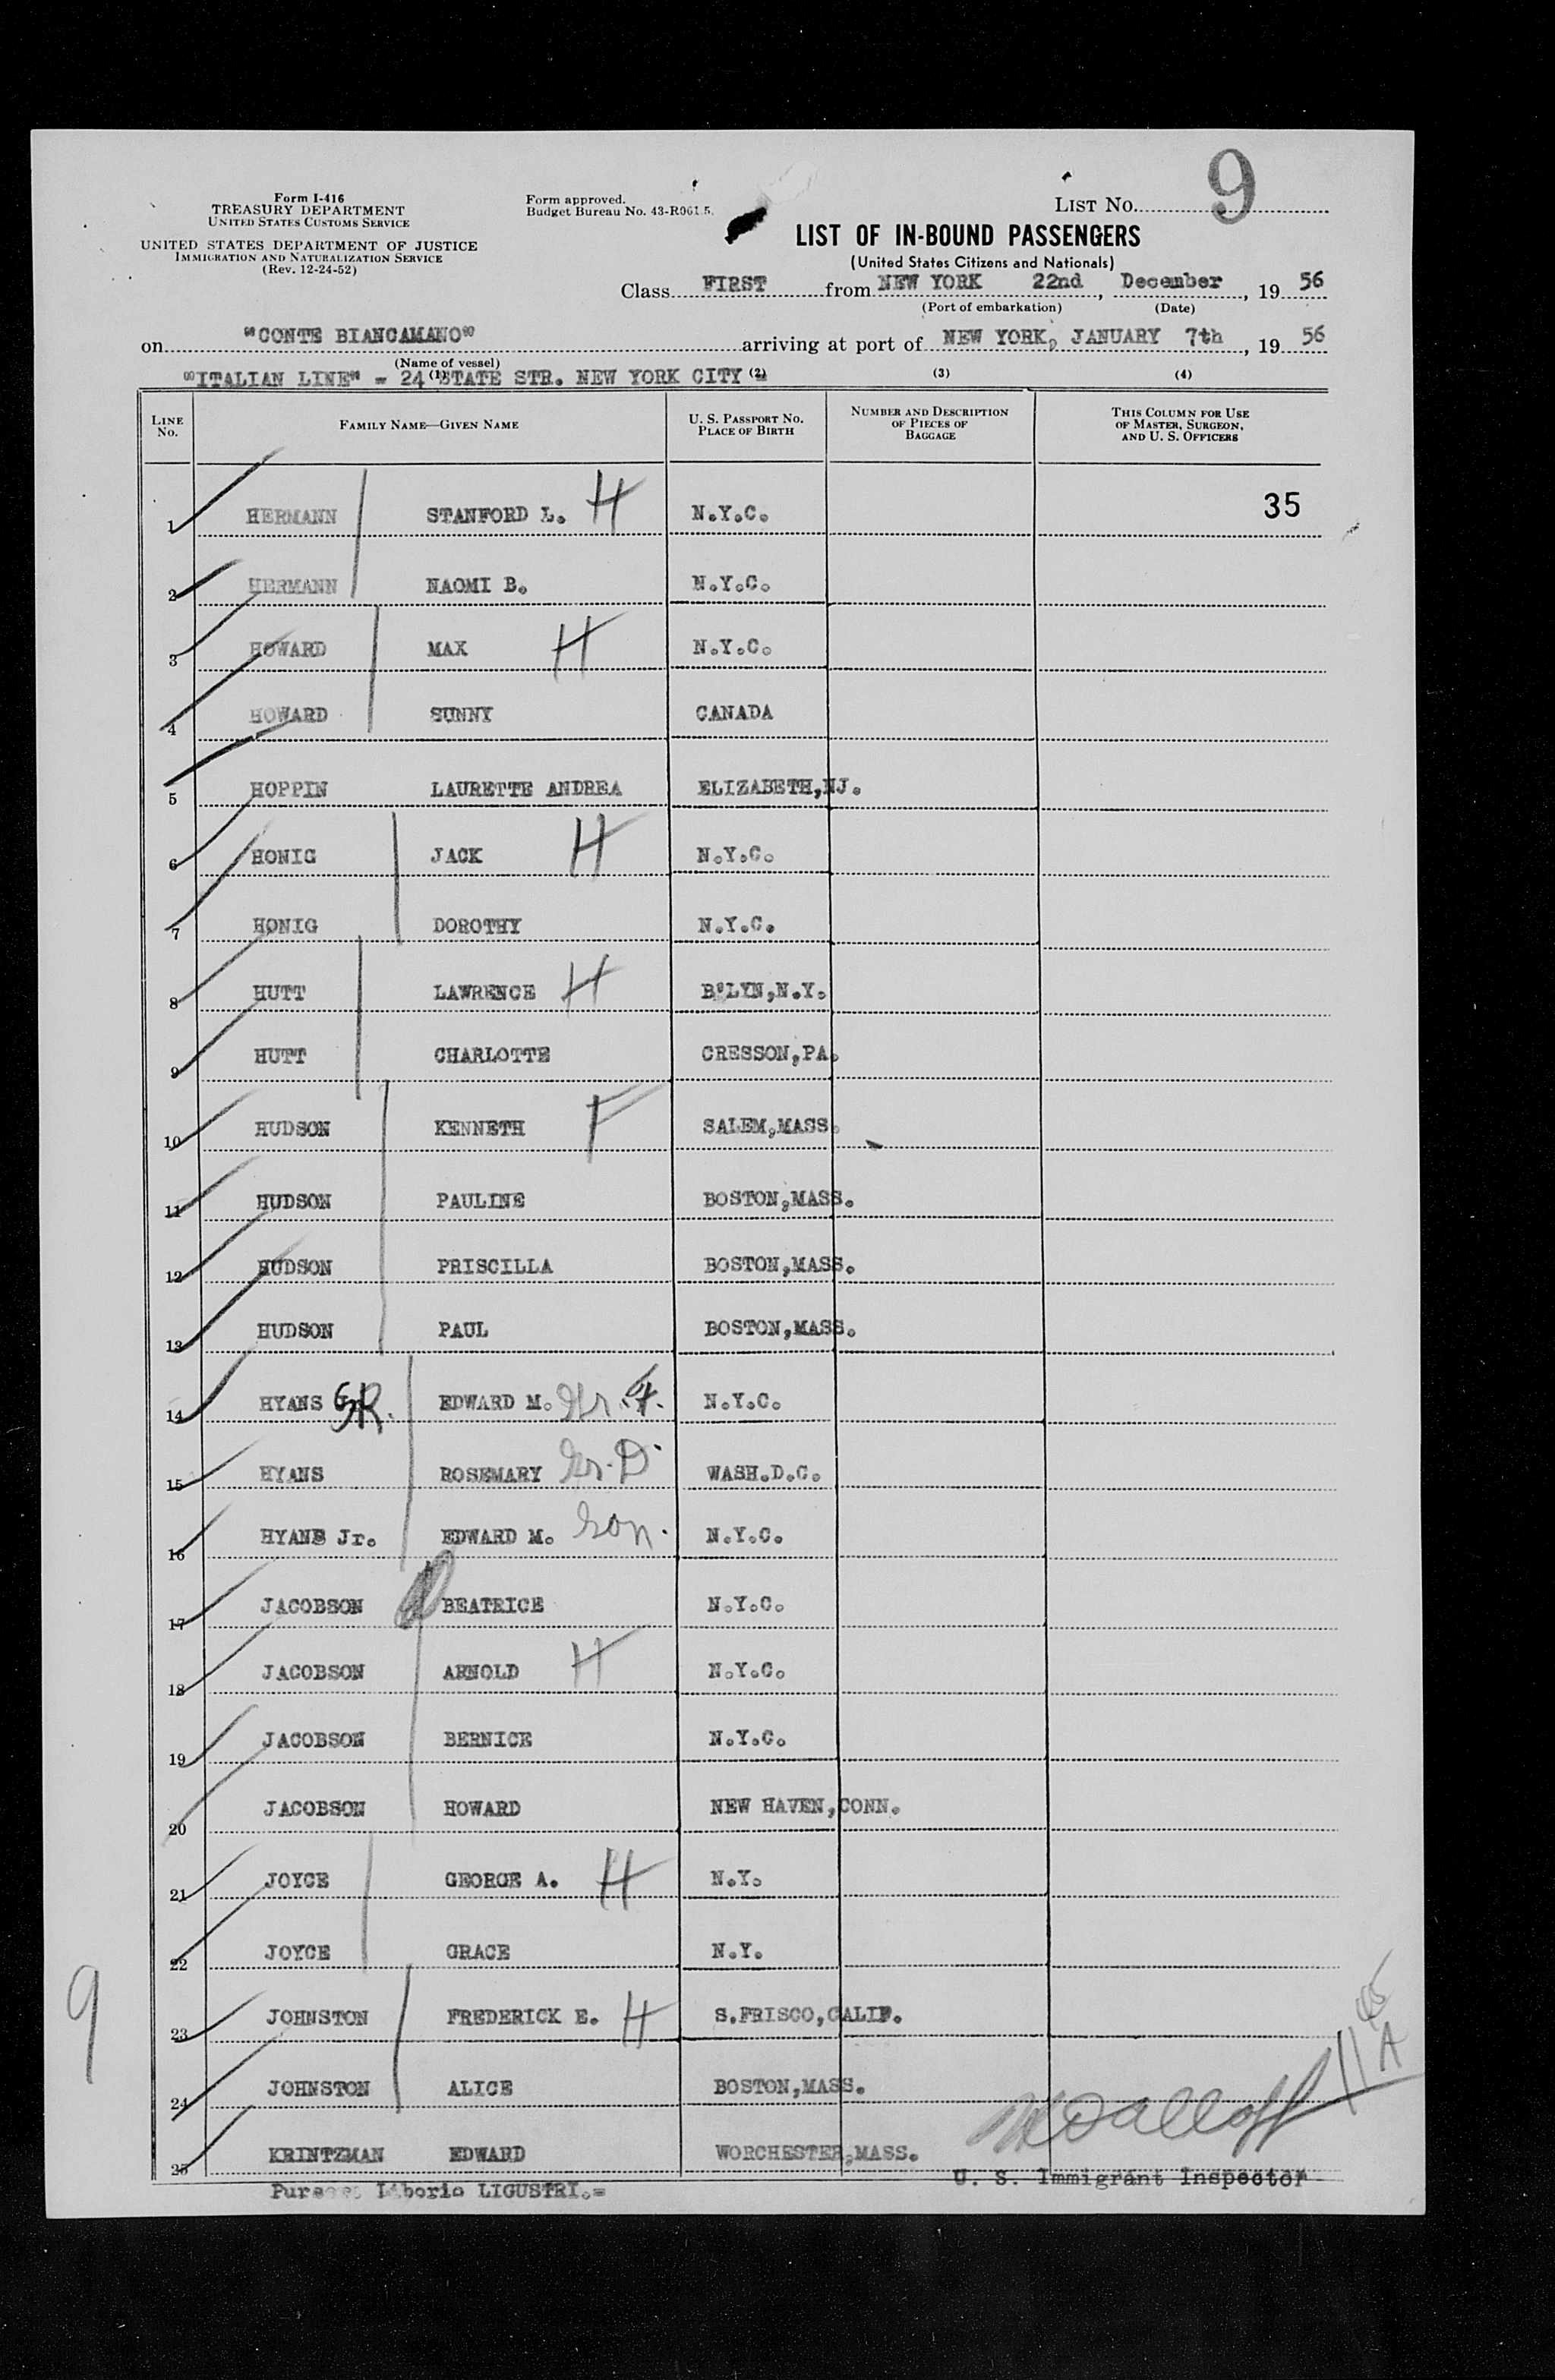 9
Form I-416
TREASURY DEPARTMENT
UNITED STATES CUSTOMS SERVICE
UNITED STATES DEPARTMENT OF JUSTICE
IMMIGRATION AND NATURALIZATION SERVICE
(Rev. 12-24-52)
Form approved.
Budget Bureau No. 43-R061.5.
LIST NO.
LIST OF IN-BOUND PASSENGERS
(United States Citizens and Nationals)
Class FIRST from NEW YORK 22nd, December, 19 56
(Port of embarkation) (Date)
on "CONTE BIANCAMANO" arriving at port of NEW YORK, JANUARY 7th, 19 56
(Name of vessel)
"ITALIAN LINE" - 24 STATE STR. NEW YORK CITY
(1) (2) (3) (4)
LINE NO. FAMILY NAME—GIVEN NAME U. S. PASSPORT NO. PLACE OF BIRTH NUMBER AND DESCRIPTION OF PIECES OF BAGGAGE THIS COLUMN FOR USE OF MASTER, SURGEON, AND U. S. OFFICERS
1 HERMANN STANFORD L. H N.Y.C. 35
2 HERMANN NAOMI B. N.Y.C.
3 HOWARD MAX H N.Y.C.
4 HOWARD SUNNY CANADA
5 HOPPIN LAURETTE ANDREA ELIZABETH,NJ.
6 HONIG JACK H N.Y.C.
7 HONIG DOROTHY N.Y.C.
8 HUTT LAWRENCE H B'LYN,N.Y.
9 HUTT CHARLOTTE CRESSON,PA.
10 HUDSON KENNETH F SALEM,MASS.
11 HUDSON PAULINE BOSTON,MASS.
12 HUDSON PRISCILLA BOSTON,MASS.
13 HUDSON PAUL BOSTON,MASS.
14 HYANS SR. EDWARD M. Gr. F. N.Y.C.
15 HYANS ROSEMARY Gr. D. WASH.D.C.
16 HYANS Jr. EDWARD M. Son. N.Y.C.
17 JACOBSON BEATRICE N.Y.C.
18 JACOBSON ARNOLD H N.Y.C.
19 JACOBSON BERNICE N.Y.C.
20 JACOBSON HOWARD NEW HAVEN,CONN.
21 JOYCE GEORGE A. H N.Y.
22 JOYCE GRACE N.Y.
23 JOHNSTON FREDERICK E. H S.FRISCO,CALIF.
24 JOHNSTON ALICE BOSTON,MASS.
25 KRINTZMAN EDWARD WORCHESTER,MASS.
9
11 45 A
U. S. Immigrant Inspector
Liborio LIGUSTRI.=